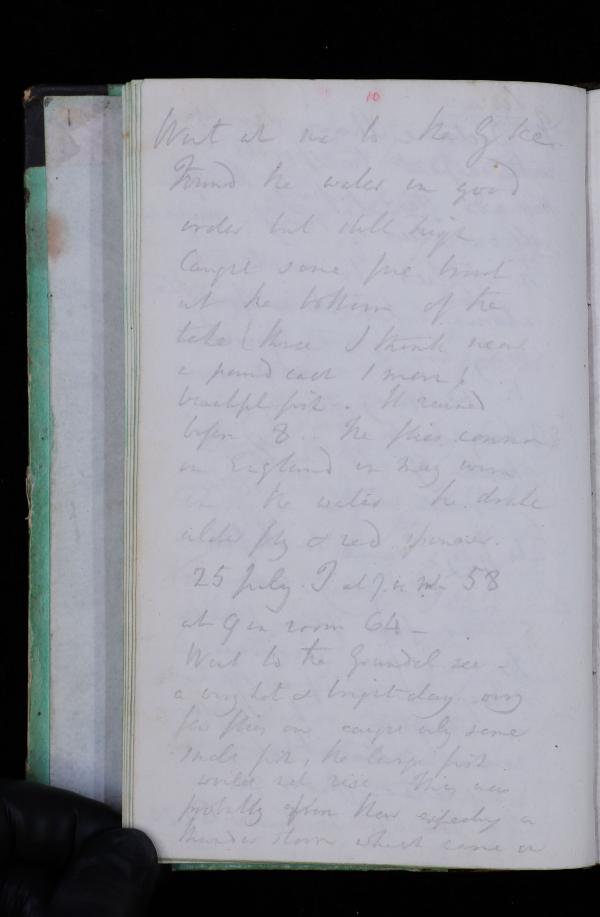 10
Went at one to the
Found the water in good
order but still high
Caught some fine trout
at the bottom of the
lake (three I think near
a pound each I mean)
beautiful fish. It rained
before 8.. The flies common
in England in May were
on the water the drake
alder fly & red spinner.
25 July. T at 7 in 58
at 9 in room 64 –
Went to the Grundel see –
a very hot & bright day very
few flies on caught only some
small fish, the large fish
would not rise. This was
probably from their expecting a
thunder storm which came on